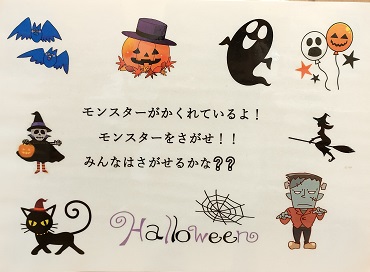 モンスターがかくれているよ！
モンスターをさがせ！！
みんなはさがせるかな？？
Halloween